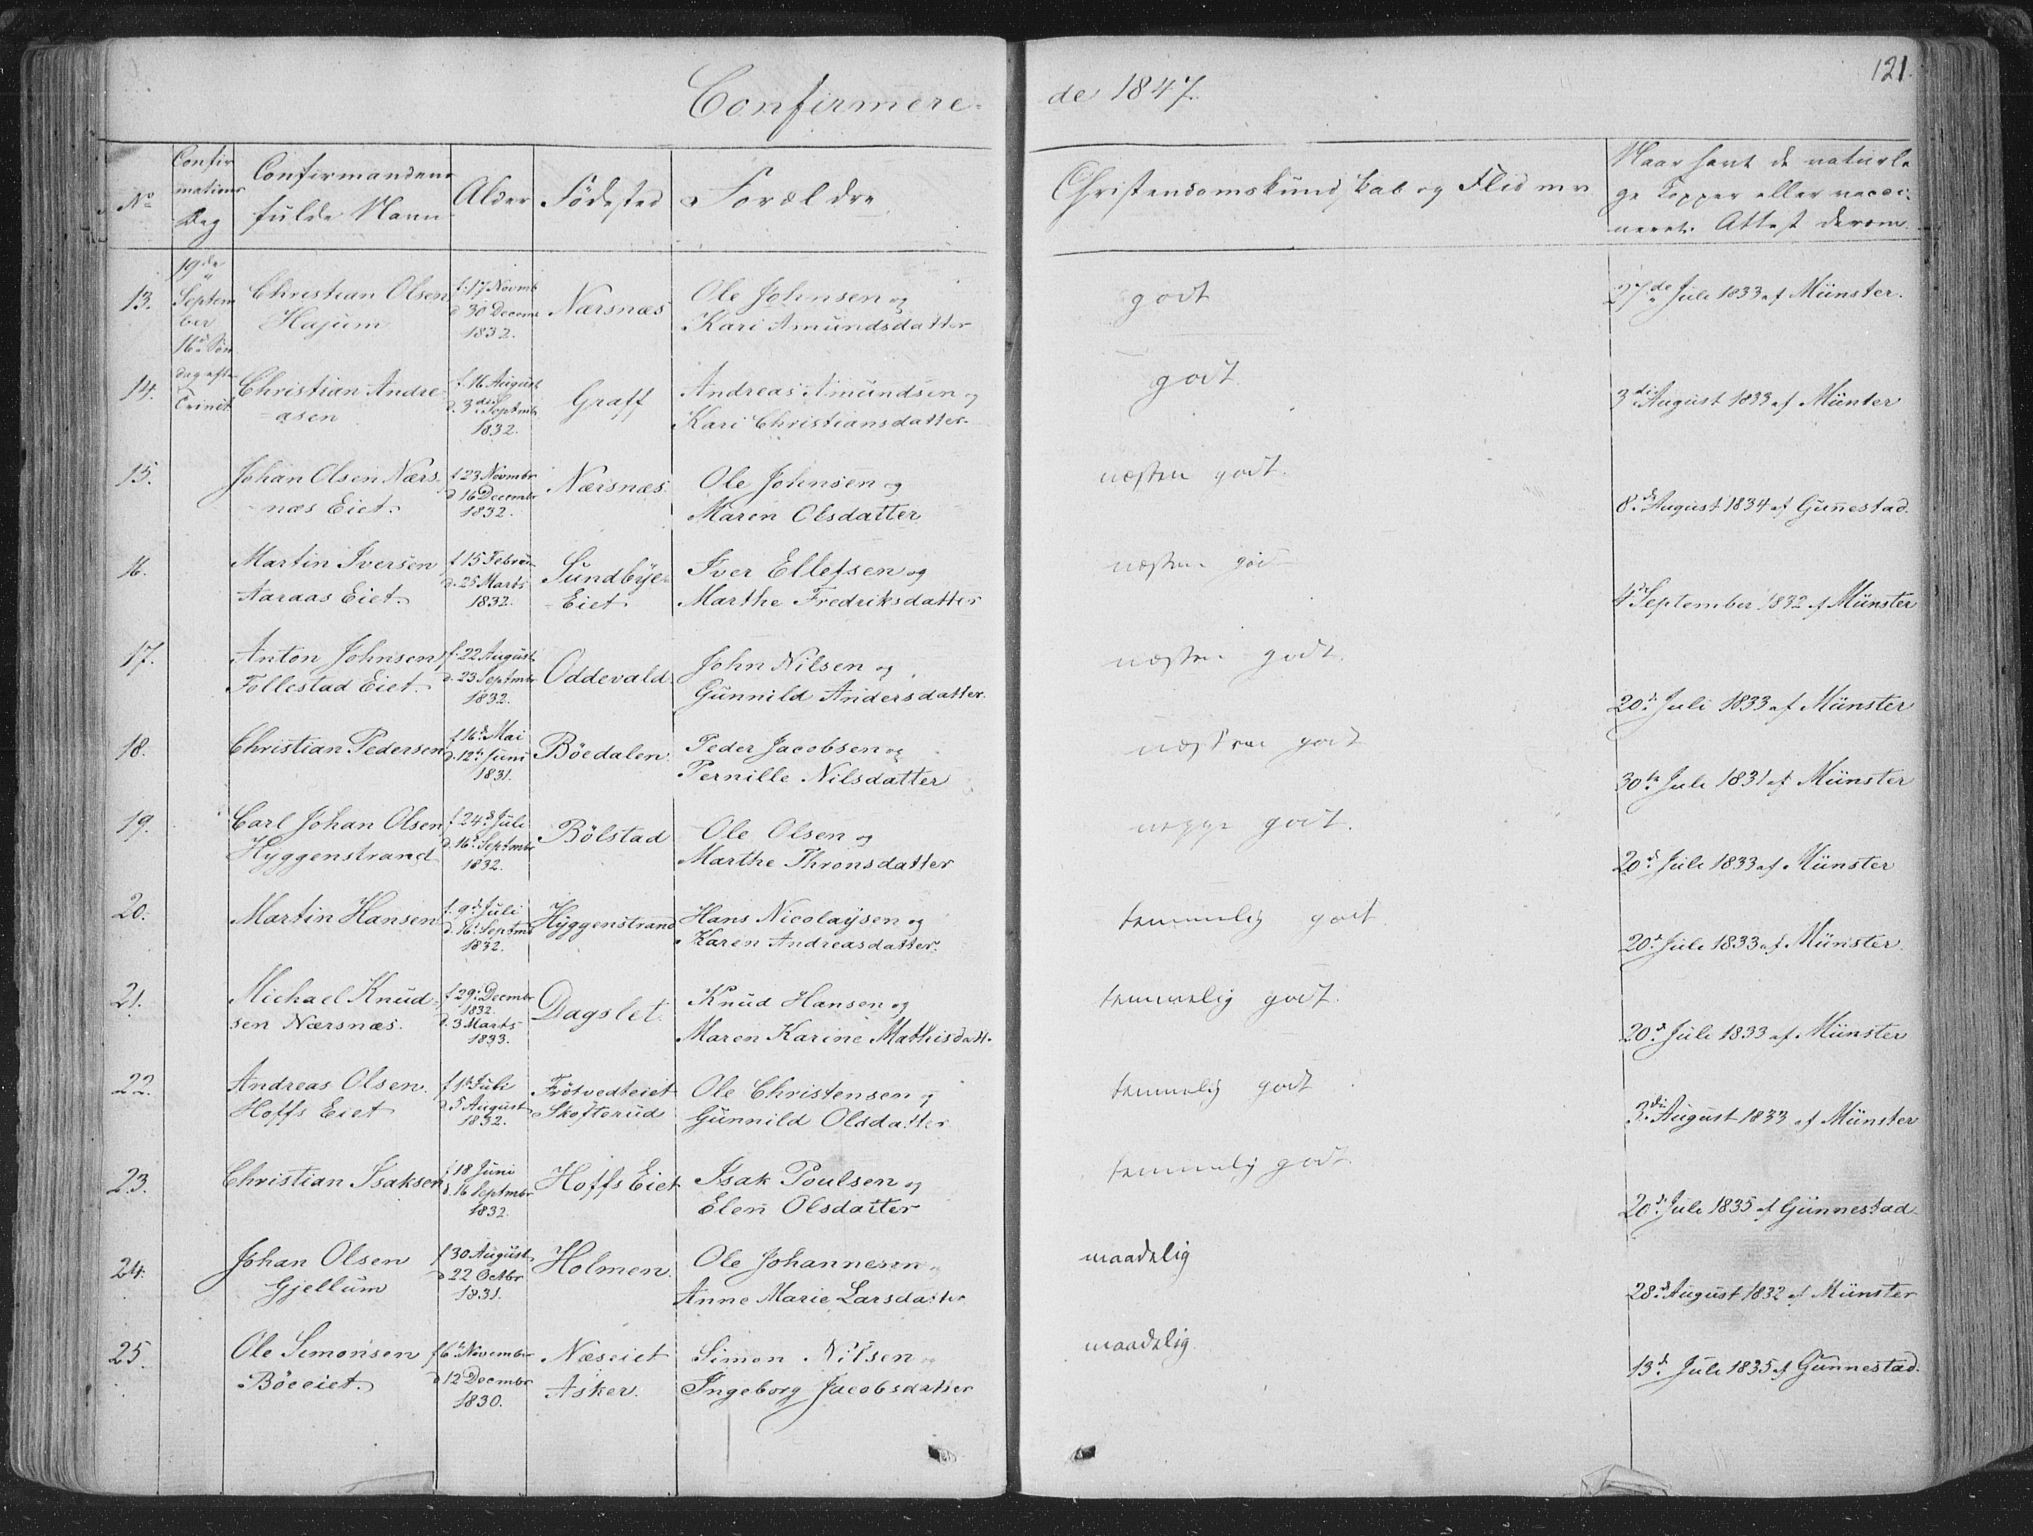 Confirmere-
de 1847.
121.
No
Confir
mations
Dag
Confirmandens
fulde Navn
Alder
Fødested
Forældre
Christendomskundskab og Flid m. v.
Naar havt de naturli
ge Kopper eller vacci-
neret. Attest derom.
19de
Septem
ber
16de Søn
dag efter
Trinit.
13.
Christian Olsen
Hajum
f. 17 Novmb
d 30 Decem
1832.
Nærsnæs
Ole Johnsen og
Kari Amundsdatter
godt
27de Juli 1833 af Münster.
14.
Christian Andre-
asen
f. 16 August
d. 3die Septmbr
1832.
Graff
Andreas Amundsen og
Kari Christiansdatter
godt.
3die August 1833 af Münter
15.
Johan Olsen Nærs-
næs Eiet.
f 23 Novmbr
d 16 Decembr
1832.
Nærsnæs.
Ole Johnsen og
Maren Olsdatter
næsten godt.
8de August 1834 af Gunnestad.
16.
Martin Iversen
Aaraas Eiet.
f 15 Februa
d. 25 Marts
1832.
Sundbye-
Eiet
Iver Ellefsen og
Marthe Fredriksdatter
næsten godt
4de September 1832 af Münster
17.
Anton Johnsen
Follestad Eiet.
f. 22 August
d. 23 Septmbr
1832.
Oddevald
John Nilsen og
Gunnild Andersdatter.
næsten godt.
20de Juli 1833 af Münster
18.
Christian Pedersen
f 16de Mai
d. 12te Juni
1831.
Böedalen.
Peder Jacobsen og
Pernille Nilsdatter
næsten godt
30te Juli 1831 af Münster
19.
Carl Johan Olsen
Hyggenstrand
f 24de Juli
d. 16de Septmbr
1832.
Bölstad
Ole Olsen og
Marthe Thronsdatter
neppe godt.
20de Juli 1833 af Münster
20.
Martin Hansen
f. 9de Juli
d. 16de Septmb
1832.
Hyggenstrand
Hans Nicolaysen og
Karen Andreasdatter.
temmelig godt
20de Juli 1833 af Münster.
21.
Michael Knud-
sen Nærsnæs.
f 29de Decmbr
1832.
d. 3 Marts
1833.
Dagslet.
Knud Hansen og
Maren Karine Mathisdatt.
temmelig godt.
20de Juli 1833 af Münster
22.
Andreas Olsen.
Hoffs Eiet
f 1te Juli
d 5 August
1832.
Frötvedteiet
Skofterud
Ole Christensen og
Gunnild Olsdatter
temmelig godt.
3die August 1833 af Münster
23.
Christian Isaksen
f 18 Juni
d. 16 Septmbr
1832.
Hoffs Eiet
Isak Poulsen og
Elen Olsdatter
temmelig godt.
20de Juli 1835 af Gunnestad
24.
Johan Olsen
Gjellum
f 30 August
d 22 Octbr
1831.
Holmen.
Ole Johannesen og
Anne Marie Larsdatter
maadelig
28de August 1832 af Münster
25.
Ole Simonsen
Böeeiet.
f 6te November
d 12 Decmbr
1830.
Næseiet
Asker.
Simon Nilsen og
Ingeborg Jacobsdatter
maadelig.
13de Juli 1835 af Gunnestad.